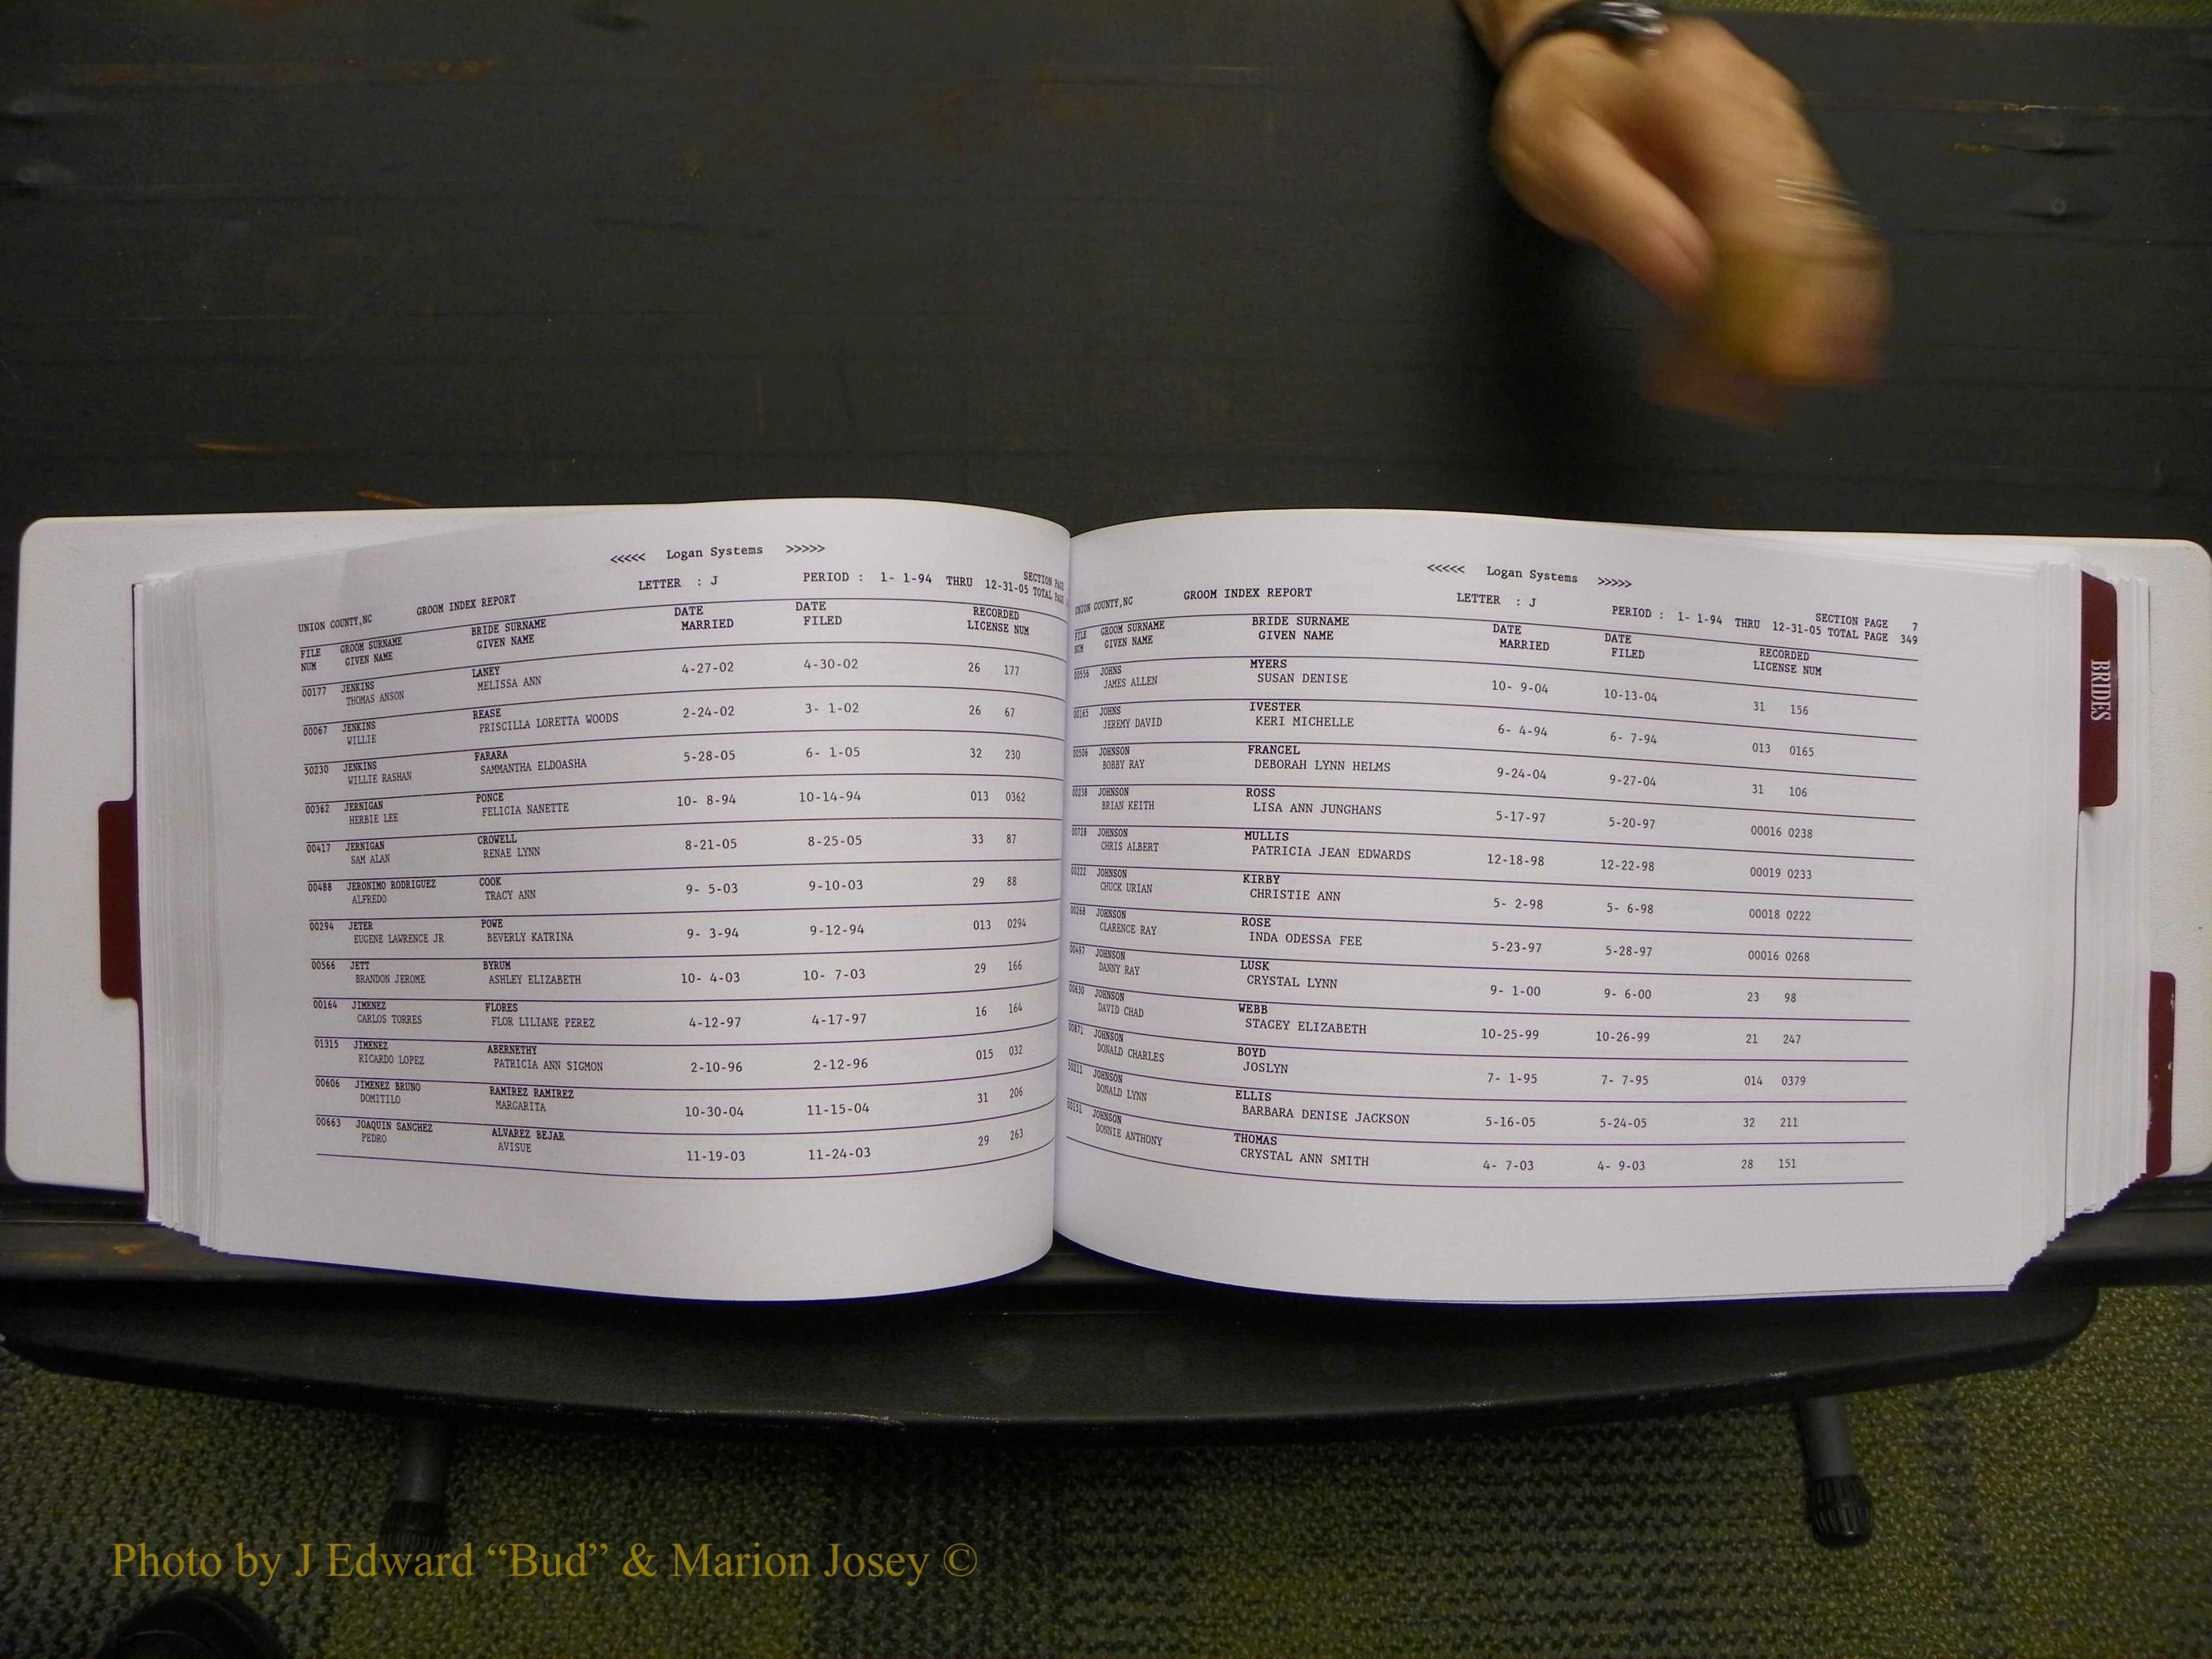 <<<<< Logan Systems >>>>>
UNION COUNTY,NC GROOM INDEX REPORT LETTER : J PERIOD : 1- 1-94 THRU 12-31-05 SECTION PAGE
TOTAL PAGE
FILE GROOM SURNAME BRIDE SURNAME DATE DATE RECORDED
NUM GIVEN NAME GIVEN NAME MARRIED FILED LICENSE NUM
00177 JENKINS LANEY 4-27-02 4-30-02 26 177
THOMAS ANSON MELISSA ANN
00067 JENKINS REASE 2-24-02 3- 1-02 26 67
WILLIE PRISCILLA LORETTA WOODS
50230 JENKINS FARARA 5-28-05 6- 1-05 32 230
WILLIE RASHAN SAMMANTHA ELDOASHA
00362 JERNIGAN PONCE 10- 8-94 10-14-94 013 0362
HERBIE LEE FELICIA NANETTE
00417 JERNIGAN CROWELL 8-21-05 8-25-05 33 87
SAM ALAN RENAE LYNN
00488 JERONIMO RODRIGUEZ COOK 9- 5-03 9-10-03 29 88
ALFREDO TRACY ANN
00294 JETER POWE 9- 3-94 9-12-94 013 0294
EUGENE LAWRENCE JR BEVERLY KATRINA
00566 JETT BYRUM 10- 4-03 10- 7-03 29 166
BRANDON JEROME ASHLEY ELIZABETH
00164 JIMENEZ FLORES 4-12-97 4-17-97 16 164
CARLOS TORRES FLOR LILIANE PEREZ
01315 JIMENEZ ABERNETHY 2-10-96 2-12-96 015 032
RICARDO LOPEZ PATRICIA ANN SIGMON
00606 JIMENEZ BRUNO RAMIREZ RAMIREZ 10-30-04 11-15-04 31 206
DOMITILO MARGARITA
00663 JOAQUIN SANCHEZ ALVAREZ BEJAR 11-19-03 11-24-03 29 263
PEDRO AVISUE
<<<<< Logan Systems >>>>>
UNION COUNTY,NC GROOM INDEX REPORT LETTER : J PERIOD : 1- 1-94 THRU 12-31-05 SECTION PAGE 7
TOTAL PAGE 349
FILE GROOM SURNAME BRIDE SURNAME DATE DATE RECORDED
NUM GIVEN NAME GIVEN NAME MARRIED FILED LICENSE NUM
00556 JOHNS MYERS 10- 9-04 10-13-04 31 156
JAMES ALLEN SUSAN DENISE
00165 JOHNS IVESTER 6- 4-94 6- 7-94 013 0165
JEREMY DAVID KERI MICHELLE
00506 JOHNSON FRANCEL 9-24-04 9-27-04 31 106
BOBBY RAY DEBORAH LYNN HELMS
00238 JOHNSON ROSS 5-17-97 5-20-97 00016 0238
BRIAN KEITH LISA ANN JUNGHANS
00728 JOHNSON MULLIS 12-18-98 12-22-98 00019 0233
CHRIS ALBERT PATRICIA JEAN EDWARDS
00222 JOHNSON KIRBY 5- 2-98 5- 6-98 00018 0222
CHUCK URIAN CHRISTIE ANN
00268 JOHNSON ROSE 5-23-97 5-28-97 00016 0268
CLARENCE RAY INDA ODESSA FEE
00497 JOHNSON LUSK 9- 1-00 9- 6-00 23 98
DANNY RAY CRYSTAL LYNN
00630 JOHNSON WEBB 10-25-99 10-26-99 21 247
DAVID CHAD STACEY ELIZABETH
00871 JOHNSON BOYD 7- 1-95 7- 7-95 014 0379
DONALD CHARLES JOSLYN
50211 JOHNSON ELLIS 5-16-05 5-24-05 32 211
DONALD LYNN BARBARA DENISE JACKSON
00151 JOHNSON THOMAS 4- 7-03 4- 9-03 28 151
DONNIE ANTHONY CRYSTAL ANN SMITH
BRIDES
Photo by J Edward “Bud” & Marion Josey ©